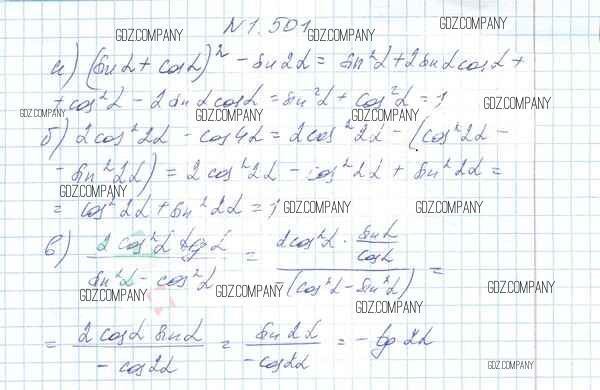 N 1.501
GDZ.COMPANY GDZ.COMPANY GDZ.COMPANY
а) (sin α + cos α)² − sin 2α = sin²α + 2 sin α cos α +
+ cos²α − 2 sin α cos α = sin²α + cos²α = 1
GDZ.COMPANY GDZ.COMPANY GDZ.COMPANY GDZ.COMPANY
б) 2 cos²2α − cos 4α = 2 cos²2α − (cos²2α −
− sin²2α) = 2 cos²2α − cos²2α + sin²2α =
GDZ.COMPANY
= cos²2α + sin²2α = 1
GDZ.COMPANY GDZ.COMPANY
в) (2 cos²α tg α)/(sin²α − cos²α) = (2 cos²α · sin α/cos α)/(−(cos²α − sin²α)) =
GDZ.COMPANY GDZ.COMPANY GDZ.COMPANY GDZ.COMPANY
= (2 cos α sin α)/(− cos 2α) = (sin 2α)/(− cos 2α) = − tg 2α
GDZ.COMPANY